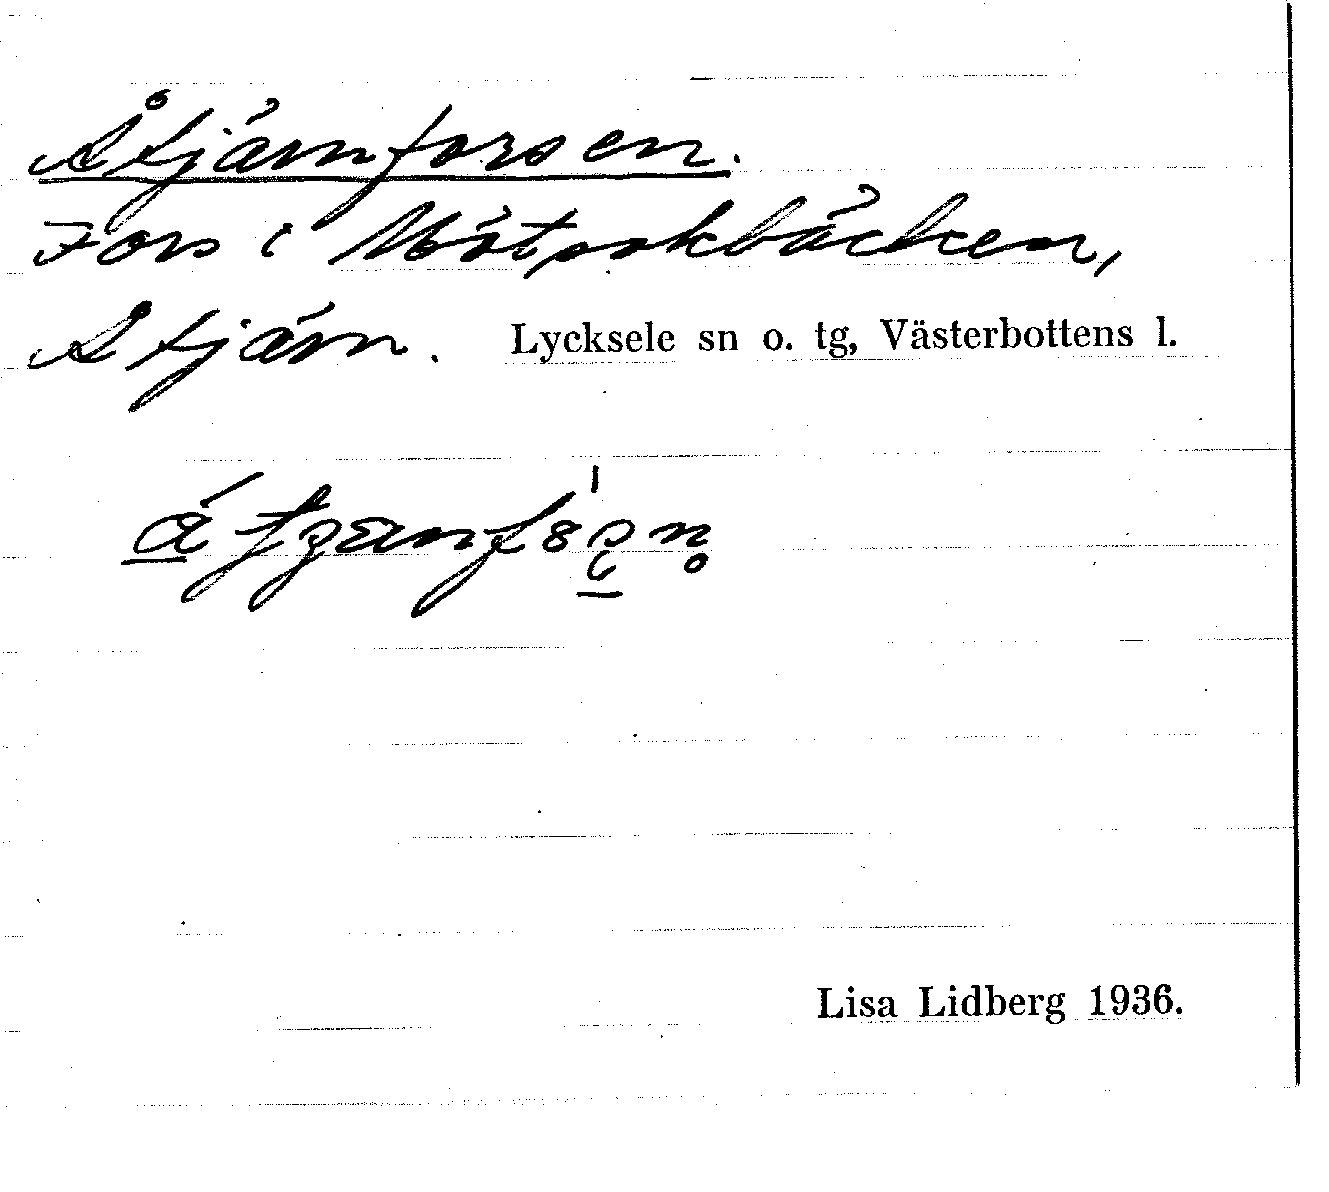 Åtjärnforsen.
Fors i Mötsokbäcken,
Åtjärn. Lycksele sn o. tg, Västerbottens l.
Lisa Lidberg 1936.